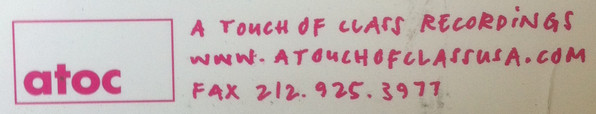 atoc
A TOUCH OF CLASS RECORDINGS
WWW.ATOUCHOFCLASSUSA.COM
FAX 212.925.3977